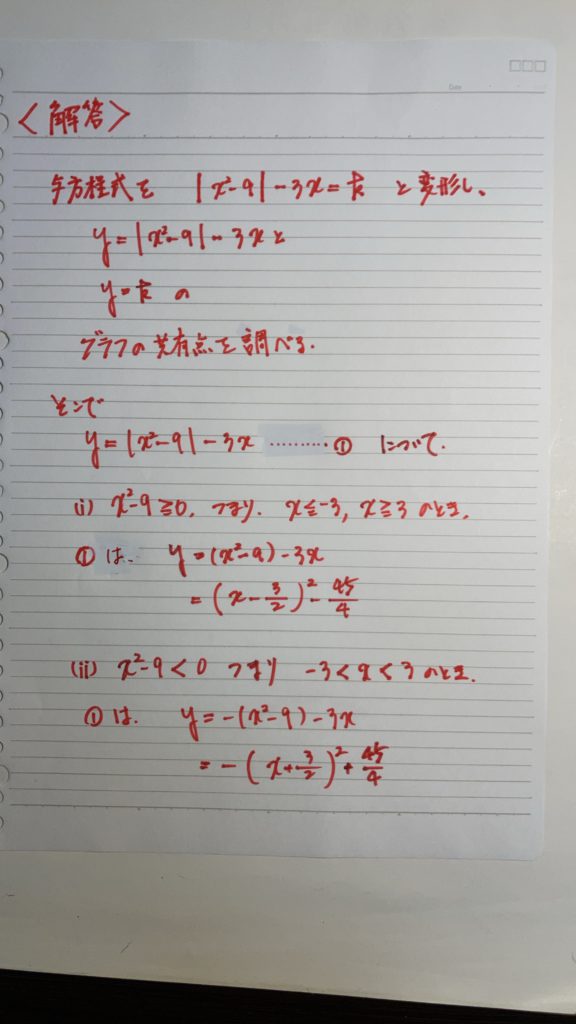 Date
<解答>
与方程式を |x²-9|-3x=k と変形し、
y=|x²-9|-3xと
y=k の
グラフの共有点を調べる.
そこで
y=|x²-9|-3x ………① について.
(i) x²-9≧0, つまり. x≦-3, x≧3 のとき.
①は、 y=(x²-9)-3x
=(x-3/2)²-45/4
(ii) x²-9<0 つまり -3<x<3 のとき.
①は. y=-(x²-9)-3x
=-(x+3/2)²+45/4